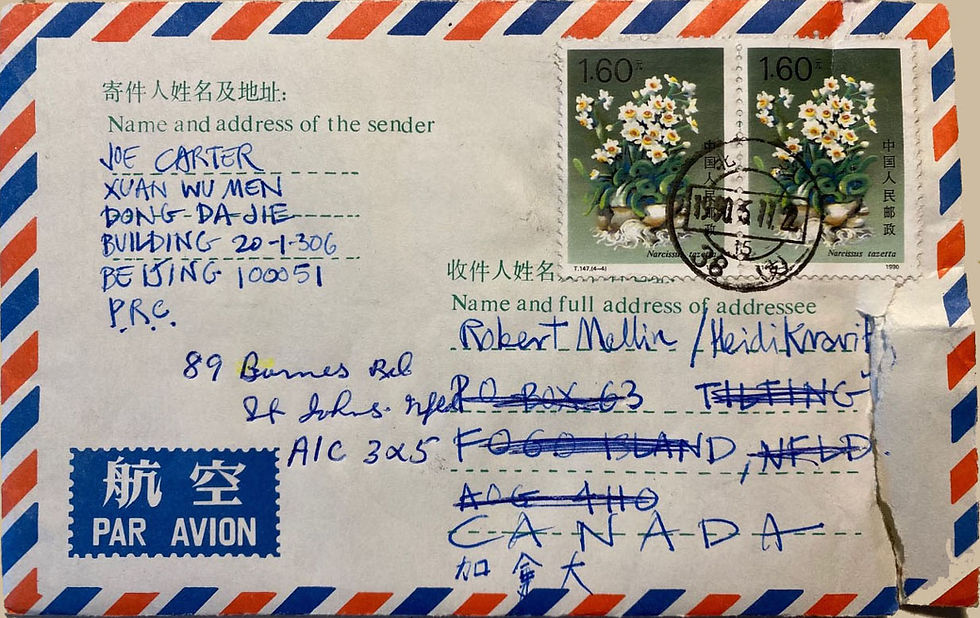 寄件人姓名及地址:
Name and address of the sender
JOE CARTER
XUAN WU MEN
DONG-DA-JIE
BUILDING 20-1-306
BEIJING 100051
P.R.C.
1.60元
中国人民邮政
Narcissus tazetta
T.147.(4-4)
1.60元
中国人民邮政
Narcissus tazetta
1990
收件人姓名
Name and full address of addressee
Robert Mellin / Heidi
PO BOX 63 TILTING
FOGO ISLAND, NFLD.
AOG 4HO
CANADA
加拿大
89 Barnes Rd
St Johns. Nfld
A1C 3X5
航空
PAR AVION